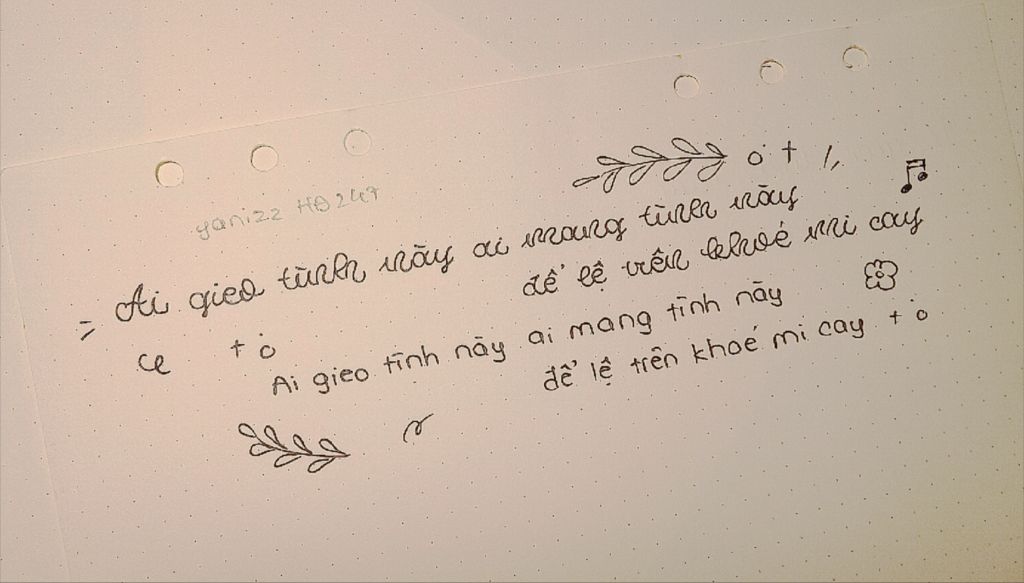 yanizz HĐ247
Ai gieo tình này ai mang tình này
để lệ trên khoé mi cay
Ai gieo tình này ai mang tình này
để lệ trên khoé mi cay